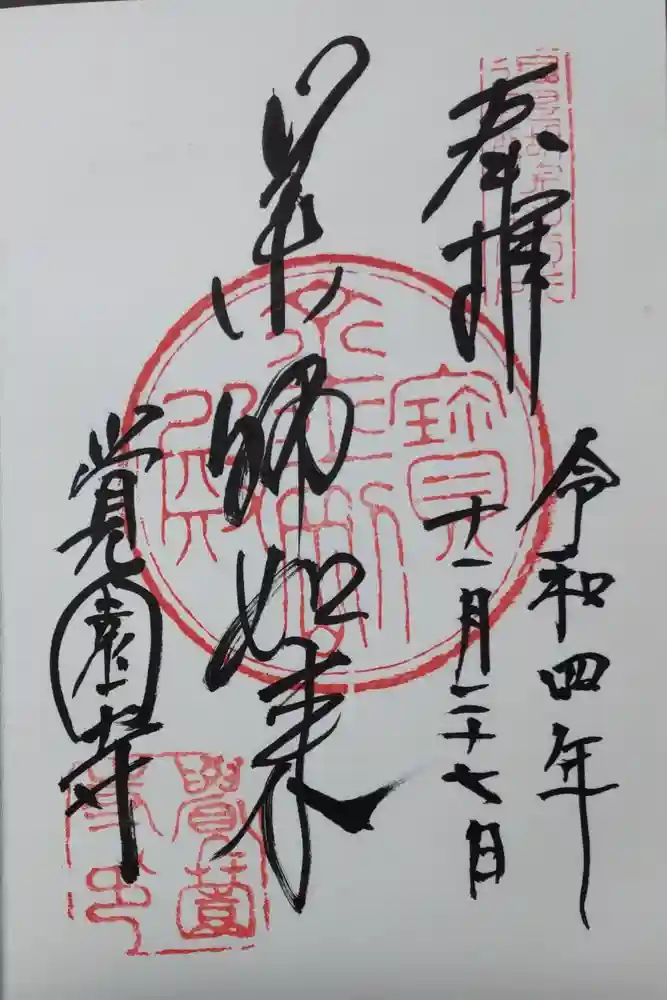 奉拝
令和四年
十一月二十七日
薬師如来
覚園寺
寶
殿
覺園
寺印